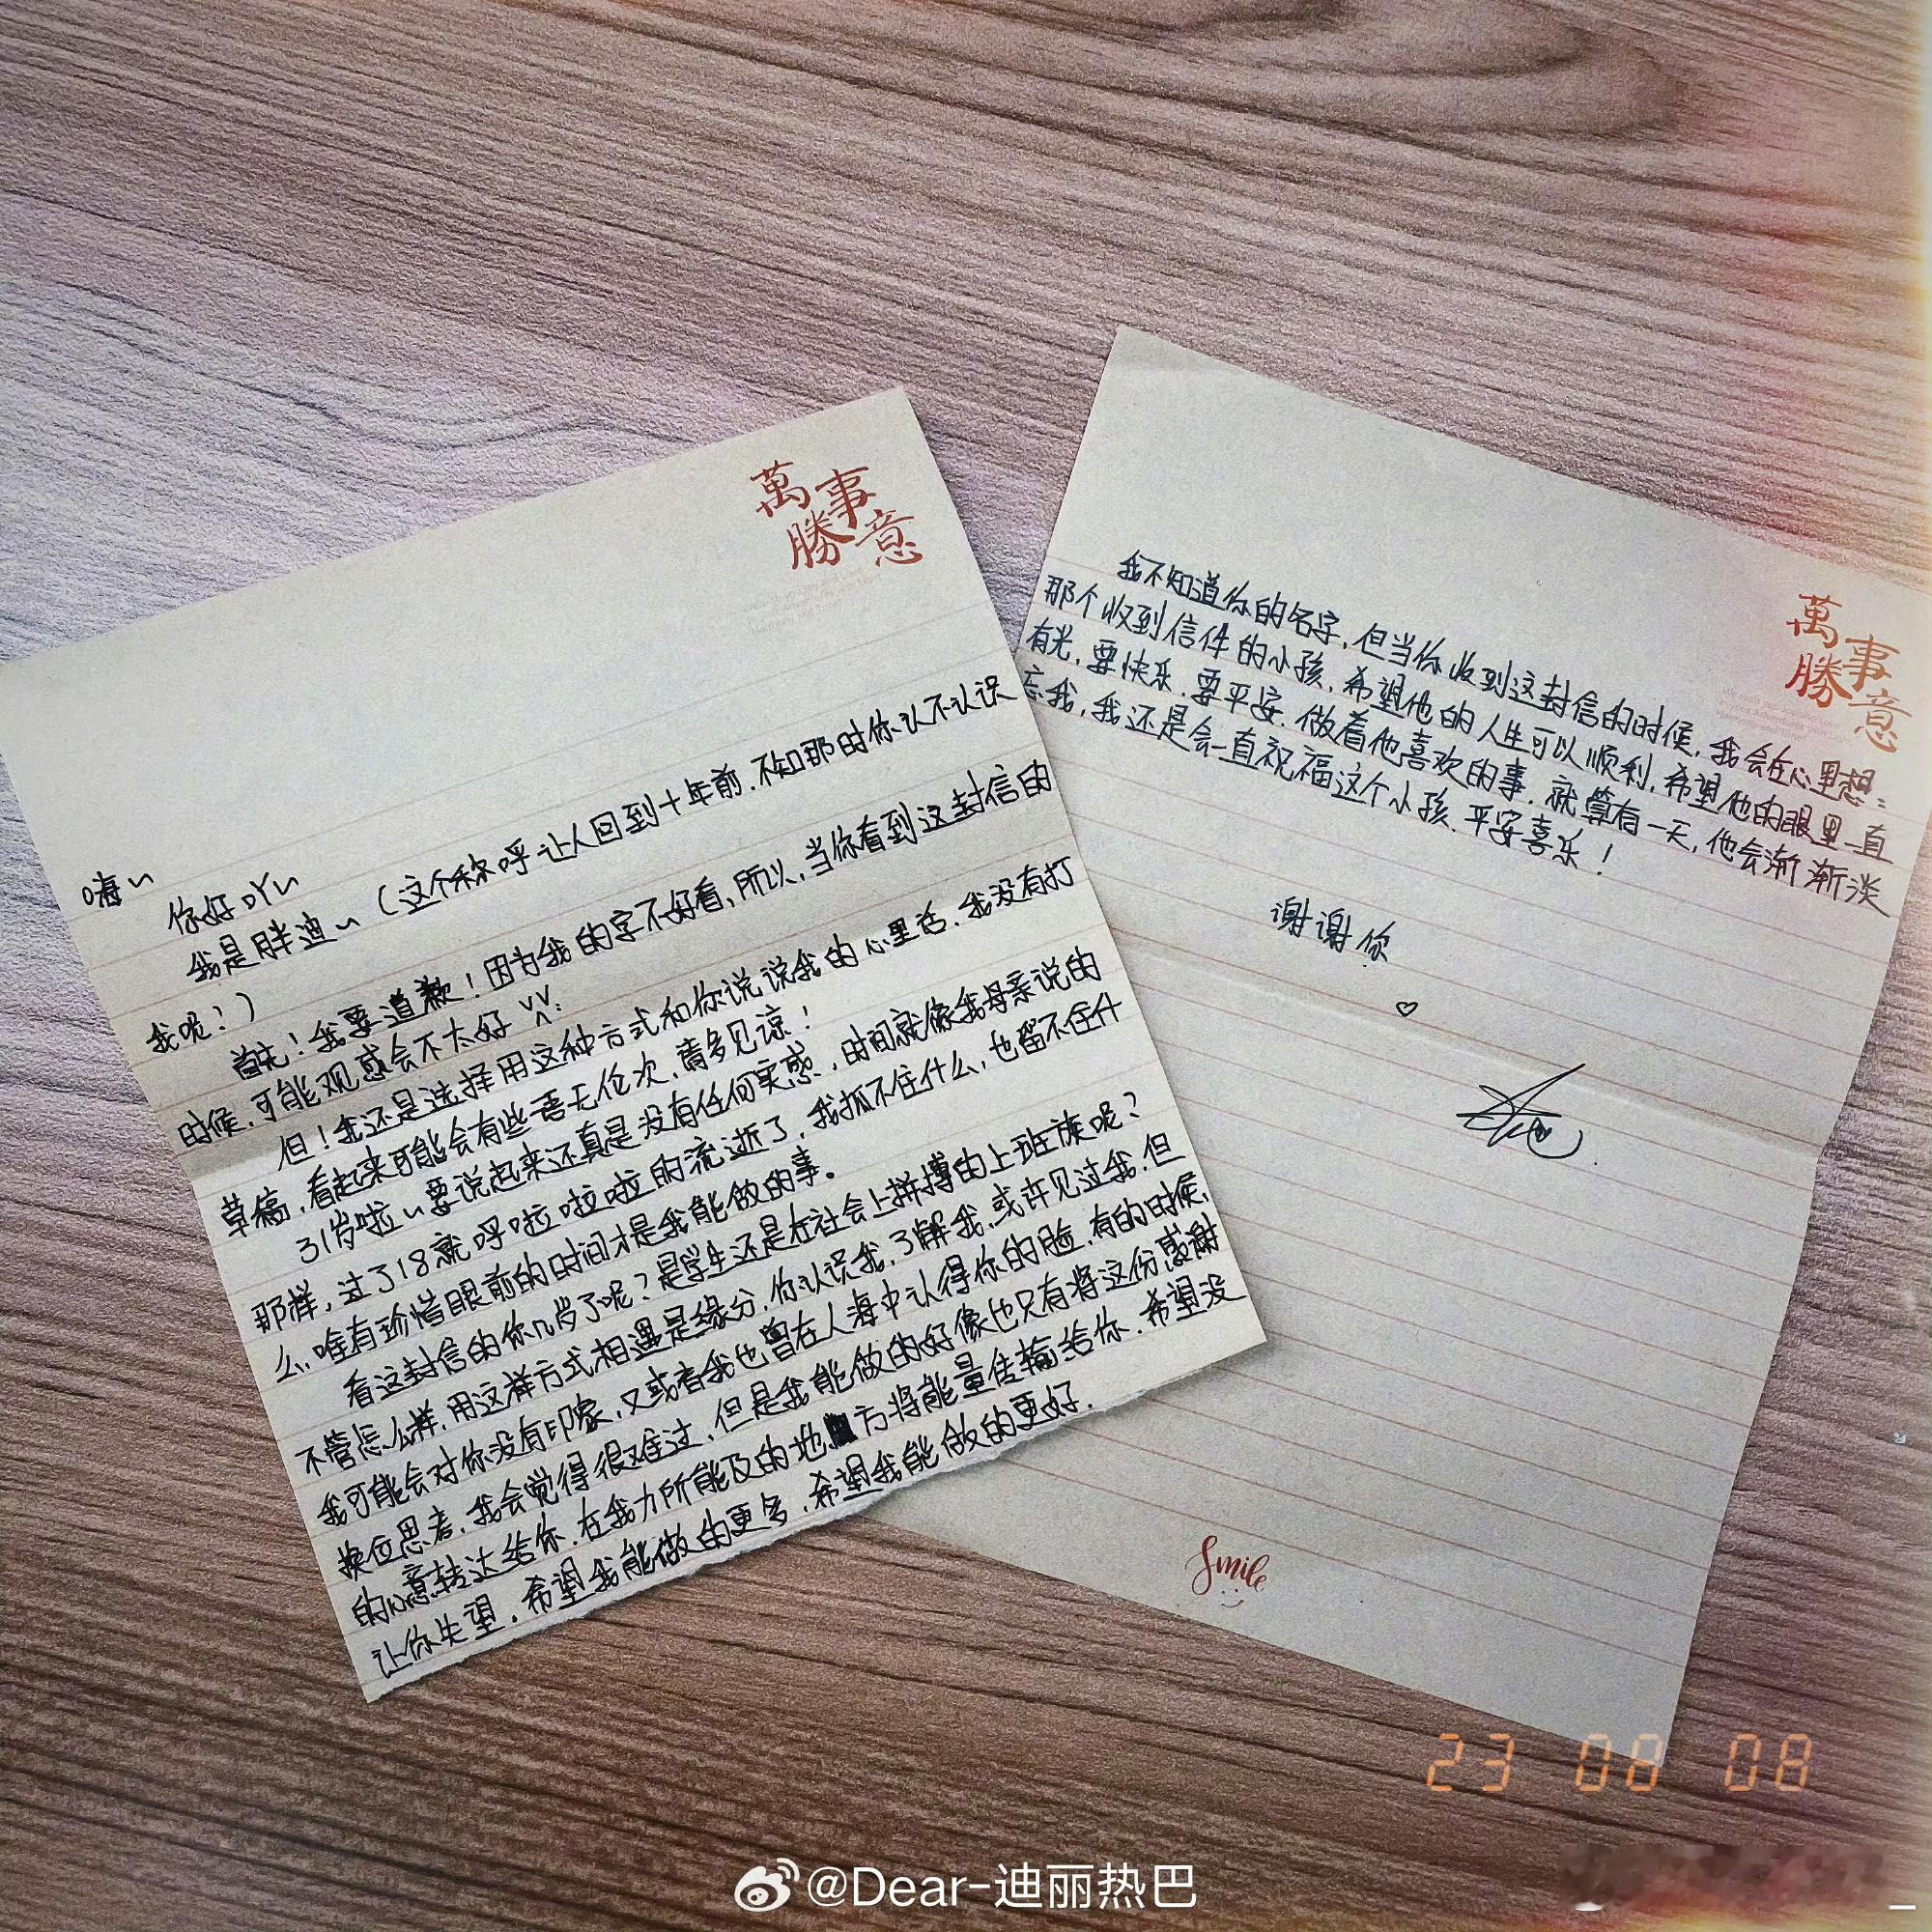 萬事
勝意
嗨~
你好吖~
我是胖迪~(这个称呼让人回到十年前.不知那时你认不认识
我呢?)
首先!我要道歉!因为我的字不好看,所以,当你看到这封信的
时候,可能观感会不太好
但!我还是选择用这种方式和你说说我的心里话.我没有打
草稿,看起来可能会有些语无伦次,请多见谅!
31岁啦~要说起来还真是没有任何实感,时间就像我母亲说的
那样,过了18就呼啦啦啦的流逝了,我抓不住什么,也留不住什
么,唯有珍惜眼前的时间才是我能做的事。
看这封信的你几岁了呢?是学生还是在社会上拼搏的上班族呢?
不管怎么样,用这样方式相遇是缘分,你认识我,了解我,或许见过我,但
我可能会对你没有印象,又或者我也曾在人海中认得你的脸,有的时候,
换位思考,我会觉得很难过,但是我能做的好像也只有将这份感谢
的心意转达给你.在我力所能及的地方将能量传输给你.希望没
让你失望,希望我能做的更多,希望我能做的更好.
萬事
勝意
我不知道你的名字,但当你收到这封信的时候,我会在心里想:
那个收到信件的小孩,希望他的人生可以顺利,希望他的眼里一直
有光,要快乐.要平安.做着他喜欢的事.就算有一天,他会渐渐淡
忘我,我还是会一直祝福这个小孩.平安喜乐!
谢谢你
Smile
23 08 08
@Dear-迪丽热巴